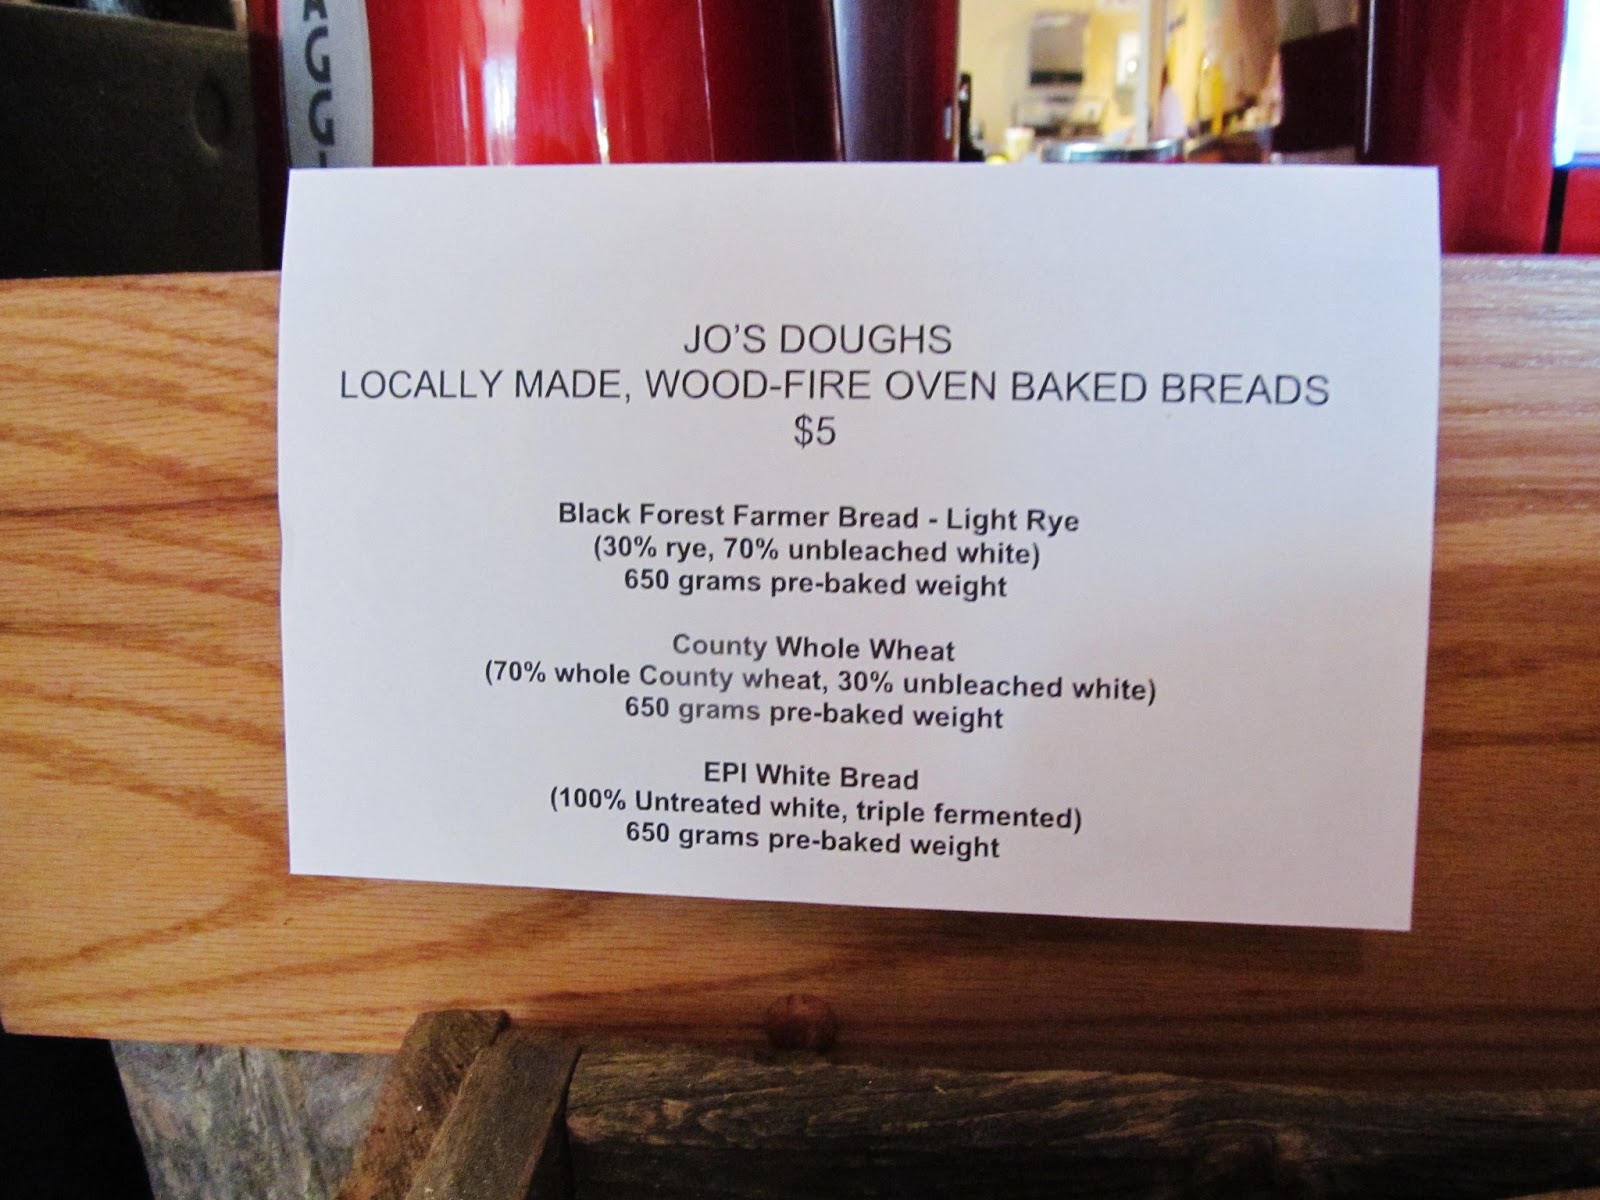 JO'S DOUGHS
LOCALLY MADE, WOOD-FIRE OVEN BAKED BREADS
$5
Black Forest Farmer Bread - Light Rye
(30% rye, 70% unbleached white)
650 grams pre-baked weight
County Whole Wheat
(70% whole County wheat, 30% unbleached white)
650 grams pre-baked weight
EPI White Bread
(100% Untreated white, triple fermented)
650 grams pre-baked weight